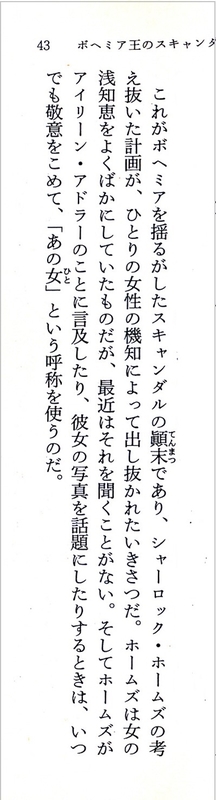 43　ボヘミア王のスキャンダ
これがボヘミアを揺るがしたスキャンダルの顚末であり、シャーロック・ホームズの考
え抜いた計画が、ひとりの女性の機知によって出し抜かれたいきさつだ。ホームズは女の
浅知恵をよくばかにしていたものだが、最近はそれを聞くことがない。そしてホームズが
アイリーン・アドラーのことに言及したり、彼女の写真を話題にしたりするときは、いつ
でも敬意をこめて、「あの女」という呼称を使うのだ。